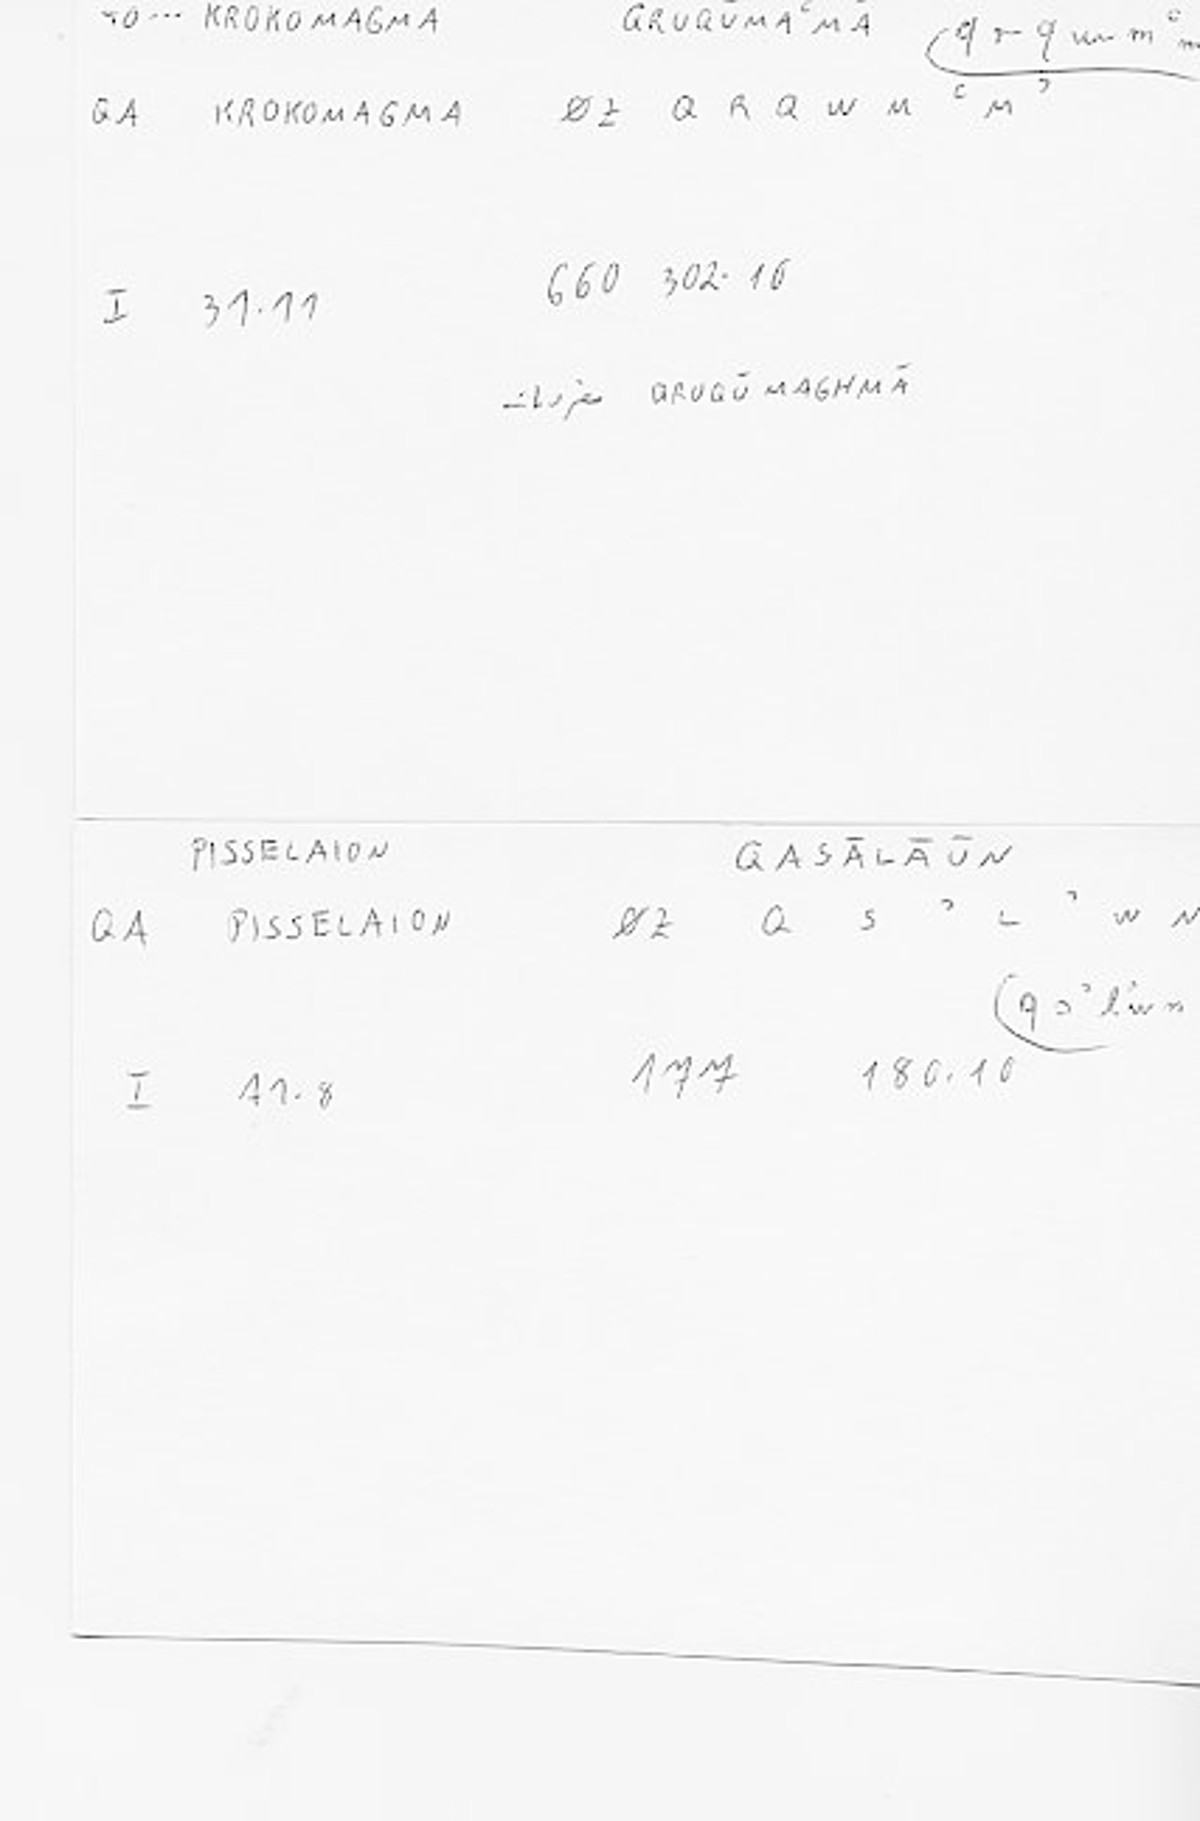 TO... KROKOMAGMA QRUQŪMAʿMĀ
QA KROKOMAGMA ØZ Q R Q W M ʿ M ʾ
I 31.11 660 302.16
QRUQŪMAGHMĀ
PISSELAION QASĀLĀŪN
QA PISSELAION ØZ Q S ʾ L ʾ W N
(q sʾlʾwn
I 11.8 177 180.10